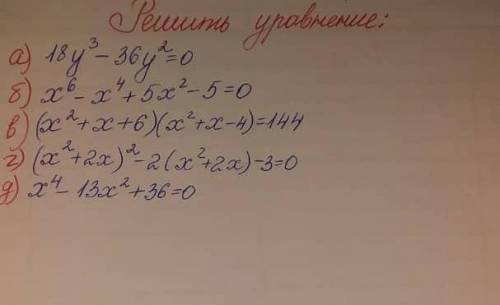 Решить уравнение:
а) 18y³ - 36y² = 0
б) x⁶ - x⁴ + 5x² - 5 = 0
в) (x² + x + 6)(x² + x - 4) = 144
г) (x² + 2x)² - 2(x² + 2x) - 3 = 0
д) x⁴ - 13x² + 36 = 0